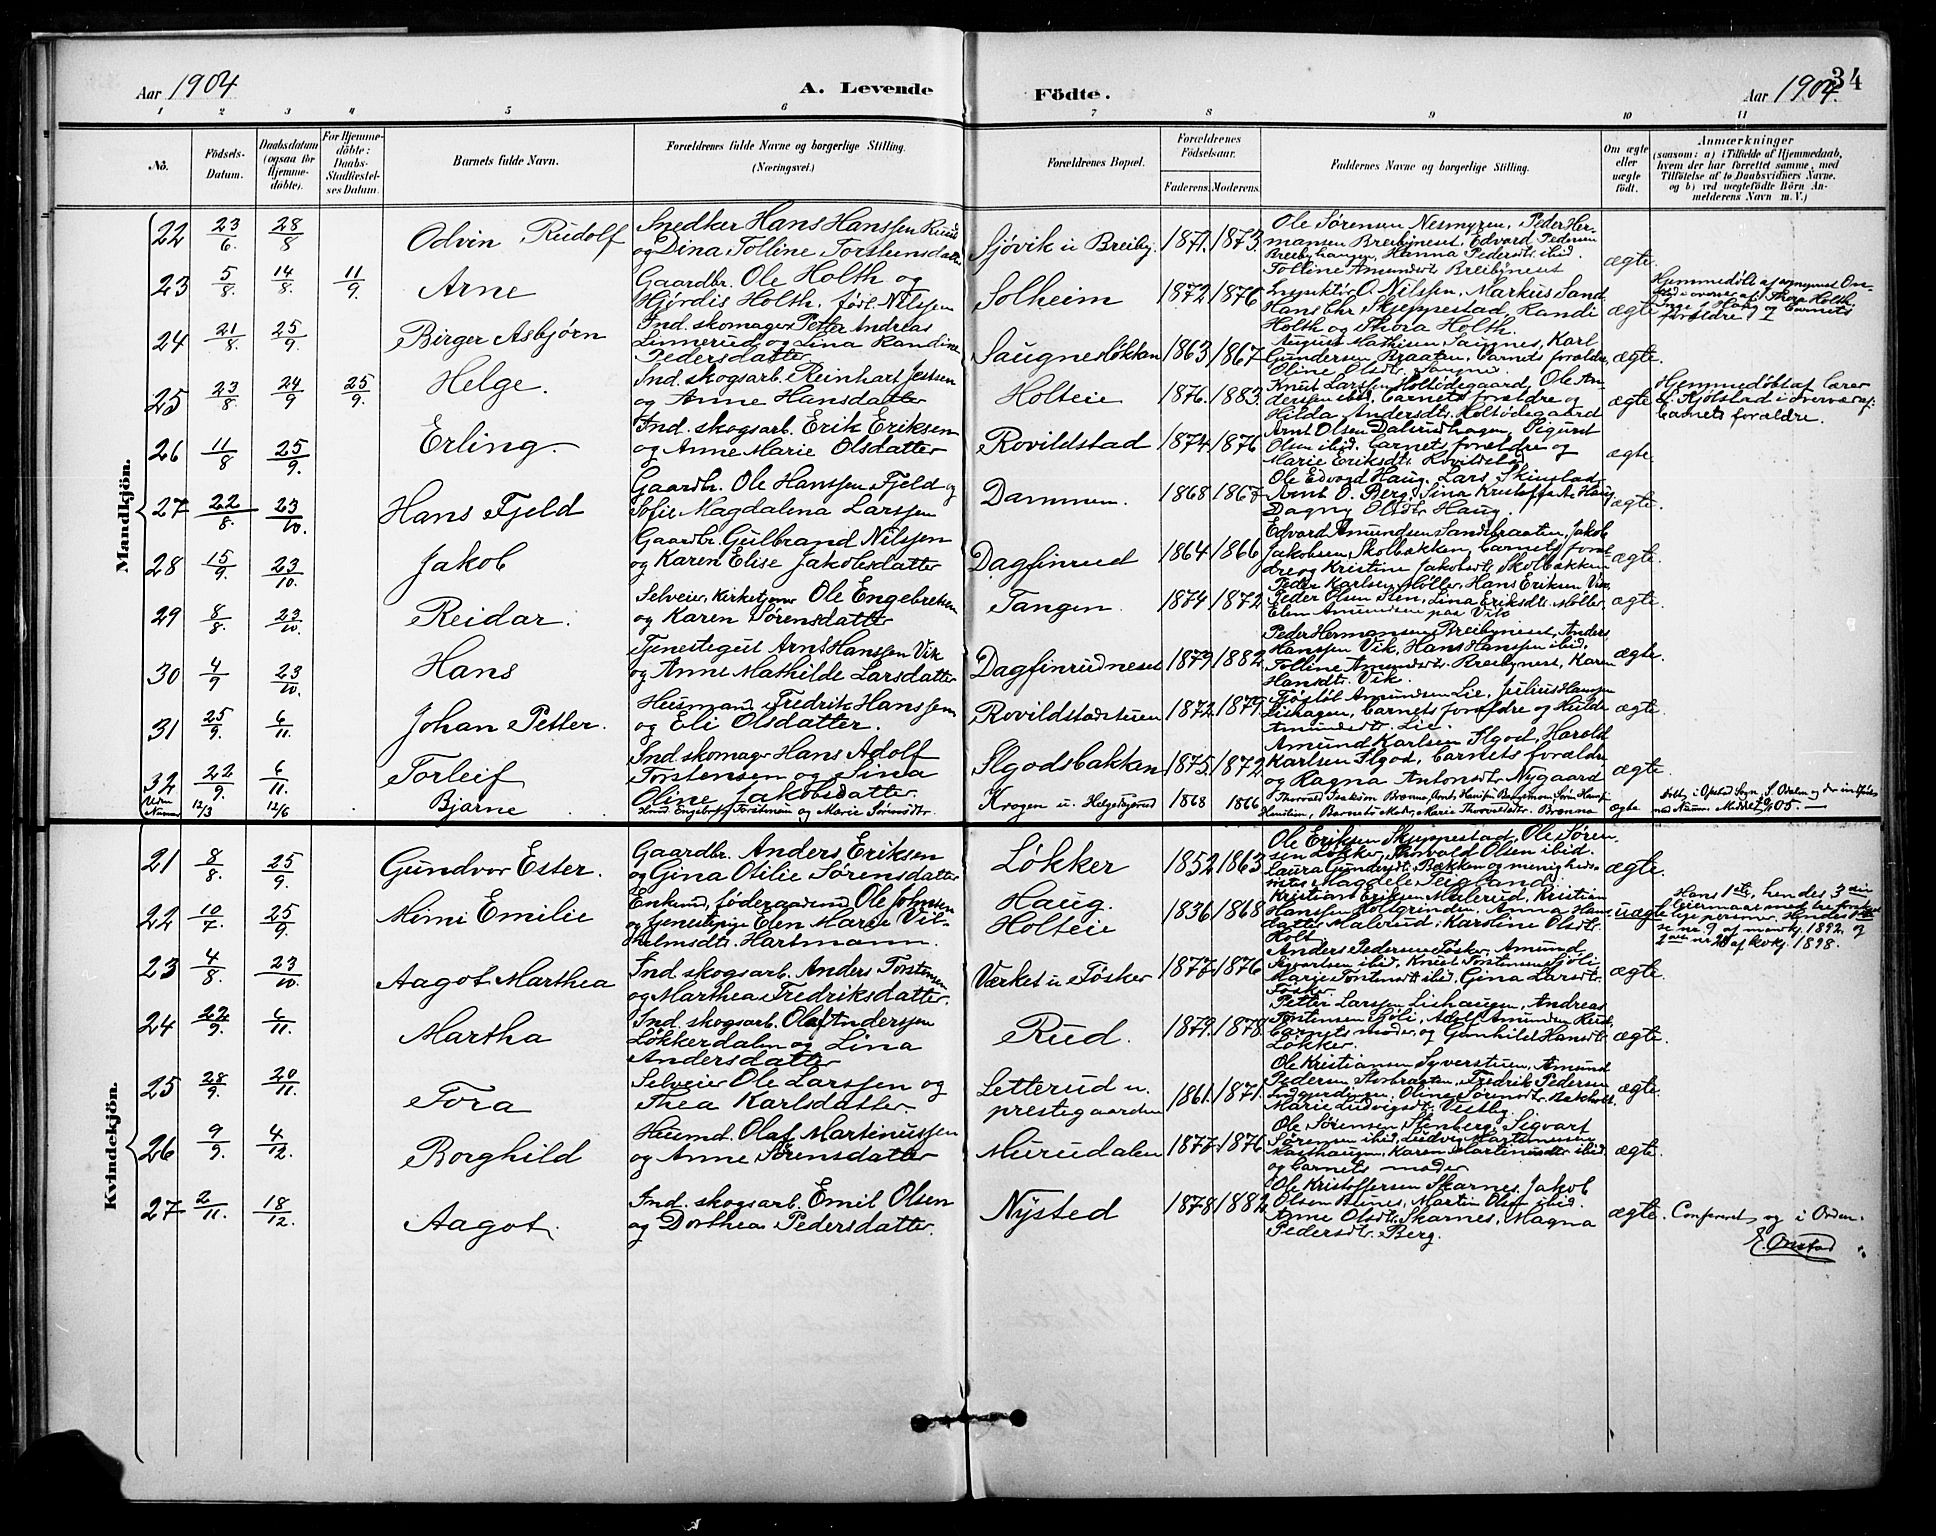 Aar 1904
A. Levende
Födte.
Aar 1904.
34
1 2 3 4 5 6 7 8 9 10 11
No.
Födsels-Datum.
Daabsdatum (ogsaa for Hjemmedöbte).
For Hjemmedöbte: Daabs-Stadfæstelses Datum.
Barnets fulde Navn.
Forældrenes fulde Navne og borgerlige Stilling. (Næringsvei.)
Forældrenes Bopæl.
Forældrenes Födselsaar.
Faderens. Moderens.
Faddernes Navne og borgerlige Stilling.
Om ægte eller uægte födt.
Anmærkninger
(saasom: a) i Tilfælde af Hjemmedaab, hvem der har forrettet samme, med Tilföielse af to Daabsvidners Navne. og b) ved uægtefödte Börn Anmelderens Navn m. V.)
Mandkjön.
22 23/6. 28/8 Odvin Rudolf
Snedker Hans Hanssen
og Dina Tolline Torstensdatter
Sjøvik u Breiby. 1871. 1873.
Ole Sørensen Nesmyren, Peder Hermansen Breibyneset, Edvard Pedersen
Breibyhaugen, Hanna Pedersdt. ibid.
Tolline Amundsdt Breibyneset
ægte.
23 5/8. 14/8. 11/9. Arne
Gaardbr. Ole Holth og
Hjørdis Holth, født Nilssen
Solheim 1872 1876
Inspektør O. Nilssen, Markus Sand,
Hans Skjeppestad, Randi
Holth og Thora Holth.
ægte
Hjemmedøbt af
forældre
24 21/8. 25/9. Birger Asbjørn
Ind. skomager Petter Andreas
Linnerud og Lina Randine
Pedersdatter
Saugnesløkken 1863 1867
August Mathisen Saugnes, Karl
Gundersen Braaten, Barnets forældre,
Oline Olsdt. Saugnes
ægte.
25 23/8 24/9 25/9. Helge.
Ind. skogsarb. Reinhart Jensen
og Anne Hansdatter
Holteie 1876. 1883.
Knut Larssen Holtødegaard, Ole Anderssen ibid, Barnets forældre og
Hilda Andersdt. Holtødegaard
ægte
Hjemmedøbt af lærer
Kjølstad i overvær af
Barnets forældre.
26 11/8 25/9. Erling.
Ind. skogsarb. Erik Eriksen
og Anne Marie Olsdatter
Rovildstad 1874 1876
Arnt Olsen Dalsrudhagen, Sigurd
Olsen ibid. Barnets forældre og
Marie Eriksdt. Rovildstad
ægte
27 22/8. 23/10. Hans Fjeld
Gaardbr. Ole Hanssen Fjeld og
Sofie Magdalena Larssen
Dammen. 1868 1867
Ole Edvard Haug, Lars Skinstad,
Arnt O. Berg, Sina Kristoffa A. Haug
Dagny Olsdt. Haug.
ægte.
28 15/9. 23/10. Jakob
Gaardbr. Gulbrand Nilssen
og Karen Elise Jakobsdatter
Dagfinrud 1864 1866
Edvard Amundsen Sandsbraaten, Jakob
Jakobsen Skolbækken, Barnets forældre og Kristine Jakobsdt. Skolbækken
ægte.
29 8/8. 23/10. Reidar.
Selveier, kirketjener Ole Engebretsen
og Karen Sørensdatter
Tangen. 1874 1872
Peder Karlsen Møller, Hans Eriksen Vik
Peder Olsen Sten, Lina Eriksdt. Møller,
Elen Amundsen paa Vik
ægte.
30 4/9 23/10. Hans
Tjenestegut Arnt Hanssen Vik
og Anne Mathilde Larsdatter
Dagfinrudneset 1879 1882
Peder Hermansen Breibyneset, Anders
Hanssen Vik, Hans Hanssen ibid,
Tolline Amundsdt. Breibyneset, Karen
Hansdt. Vik.
ægte.
31 25/9. 6/11. Johan Petter.
Husmand Fredrik Hanssen
og Eli Olsdatter.
Rovildstadstuen 1872 1879.
Amundsen Lie, Julius Hansen
Lishagen, Barnets forældre og Hilda
Amundsdt. Lie.
ægte.
32 22/9. 6/11. Torleif
Ind. skomager Hans Adolf
Torstensen og Lina
Oline Jakobsdatter.
Slgodsbakken 1875. 1872
Amund Karlsen Slgod, Harald
Karlsen Slgod, Barnets forældre
og Ragna Antonsdt. Nygaard
ægte.
Uden Numer 12/3 12/6 Bjarne
Knud Engebret Torstensen og Marie Sørensdtr.
Krogen u. Helgebyrud 1868 1866
Barnets Moder, Marie Thorvaldsdtr. Brænna
ægte
Født i Opstad Sogn, S. Odalen og der indført
Kvindekjön.
21 8/8. 25/9. Gundvor Ester.
Gaardbr. Anders Eriksen
og Gina Otilie Sørensdatter
Løkker 1852 1863
Ole Eriksen Skjeppestad, Ole Sørensen Løkker, Thorvald Olsen ibid.
Laura Gundersdt. Bækken og menighedssøster Magdele Seigland
ægte.
22 10/7. 25/9. Mimi Emilie
Enkemd, føderaadsmd Ole Johnsen
og tjenestepige Elen Marie Vilhelmsdt. Hartmann.
Haug.
Holteie 1836 1868
Kristian Eriksen Malerud, Kristian
Hanssen Holtgrinden, Anna Hansdatter Malerud, Karoline Olsdt.
Holt
uægte
Hans 1ste, hendes 3die
leiermaal med tre forskjellige personer. Hendes
se nr. 9 af mandkj. 1892 og
af kvkj. 1898.
23 4/8. 23/10. Aagot Marthea
Ind. skogsarb. Anders Torstensen
og Marthea Fredriksdatter.
Værket u Føsker 1877. 1876.
Anders Pedersen Føsker, Amund
Sigvartsen ibid, Knut Torstensen Sjøli,
Marie Torstensdt ibid. Gina Larsdt.
Føsker
ægte.
24 22/9. 6/11. Martha
Ind. skogsarb. Olaf Anderssen
Løkkerdalen og Lina
Andersdatter
Rud. 1879. 1878.
Petter Larssen Lishaugen, Andreas
Torstensen Sjøli, Adolf Amundsen Rud,
Barnets moder og Gunhild Hansdt.
Løkker.
ægte.
25 28/9. 20/11. Tora
Selveier Ole Larssen og
Thea Karlsdatter.
Letterud u.
prestegaarden 1861. 1871.
Ole Kristiansen Syverstuen, Amund
Pedersen Storbraaten, Fredrik Pedersen
Oline Sørensdt. Bækholt
Marie Ludvigsdt. Vestby.
ægte.
26 9/9. 4/12. Borghild
Husmd. Olaf Martinussen
og Anne Sørensdatter
Murudalen 1877. 1876.
Ole Sørensen Stenberg, Sigvart
Sørensen ibid, Ludvig Martinussen
Karen Martinusdt. ibid
og barnets moder
ægte.
27 2/11. 18/12. Aagot.
Ind. skogsarb. Emil Olsen
og Dorthea Pedersdatter.
Nysted 1878. 1882.
Ole Kristoffersen Skarnes, Jakob
Olsen Bunes, Martin Olsen ibid.
Anne Olsdt. Skarnes, Magna
Pedersdt. Berg.
ægte.
Confereret og i Orden.
E. Onstad